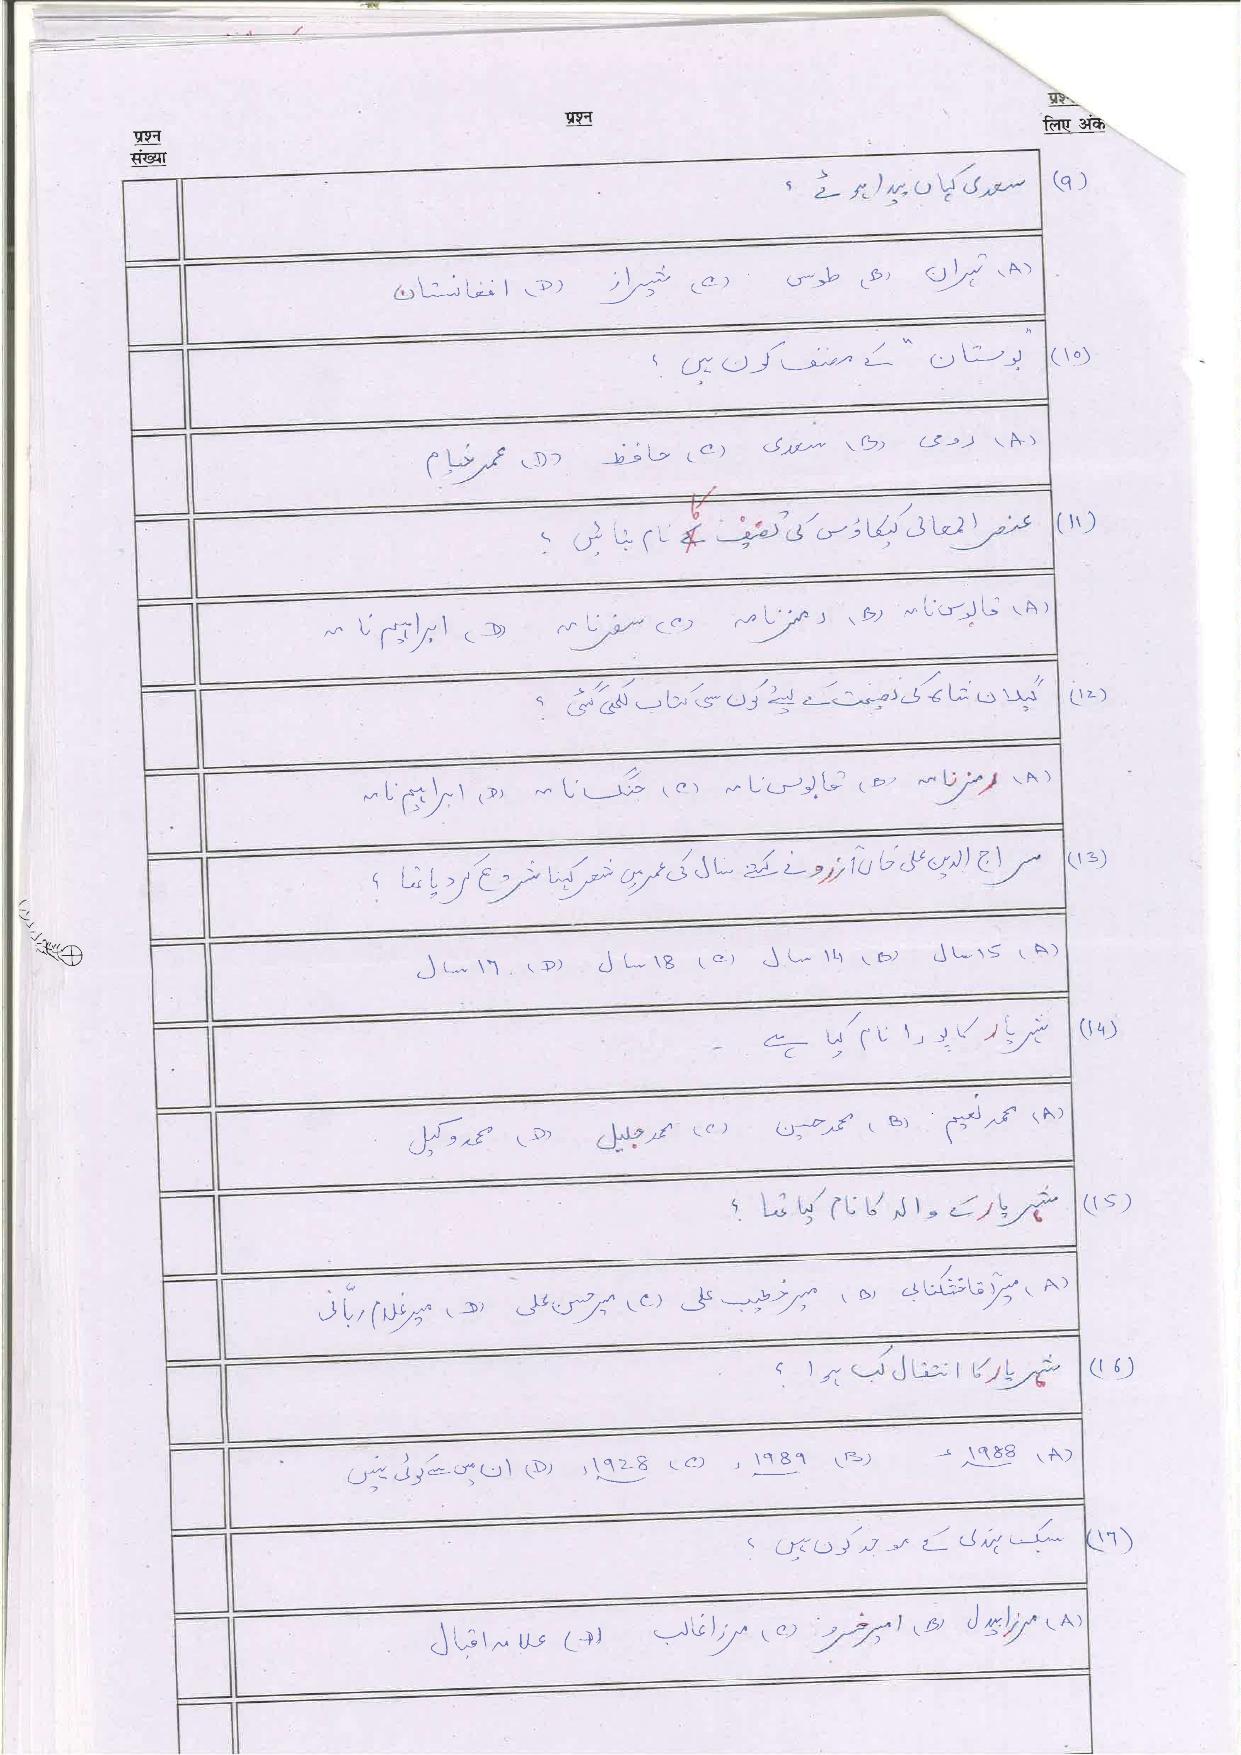 प्रश्न संख्या
प्रश्न
लिए अंक
(۹) سعدی کہاں پیدا ہوئے ؟
(A) تہران (B) طوس (C) شیراز (D) افغانستان
(۱۰) "بوستان" کے مصنف کون ہیں ؟
(A) رومی (B) سعدی (C) حافظ (D) عمر خیام
(۱۱) عنصر المعالی کیکاؤس کی تصنیف کا نام بتائیں ؟
(A) قابوس نامہ (B) رمز نامہ (C) سفر نامہ (D) ابراہیم نامہ
(۱2) گیلان شاہ کی نصیحت کے لیے کون سی کتاب لکھی گئی ؟
(A) رمز نامہ (B) قابوس نامہ (C) جنگ نامہ (D) ابراہیم نامہ
(۱3) سراج الدین علی خان آرزو نے کتنے سال کی عمر میں شعر کہنا شروع کر دیا تھا ؟
(A) 15 سال (B) 14 سال (C) 18 سال (D) 17 سال
(14) شہریار کا پورا نام کیا ہے -
(A) محمد نعیم (B) محمد حسین (C) محمد جلیل (D) محمد وکیل
(15) شہریار کے والد کا نام کیا تھا ؟
(A) میر آقا خشکنابی (B) میر خطیب علی (C) میر حسن علی (D) میر غلام ربّانی
(16) شہریار کا انتقال کب ہوا ؟
(A) 1988ء (B) 1989ء (C) 1928ء (D) ان میں سے کوئی نہیں
(17) سبک ہندی کے موجد کون ہیں ؟
(A) مرزا بیدل (B) امیر خسرو (C) مرزا غالب (D) علامہ اقبال